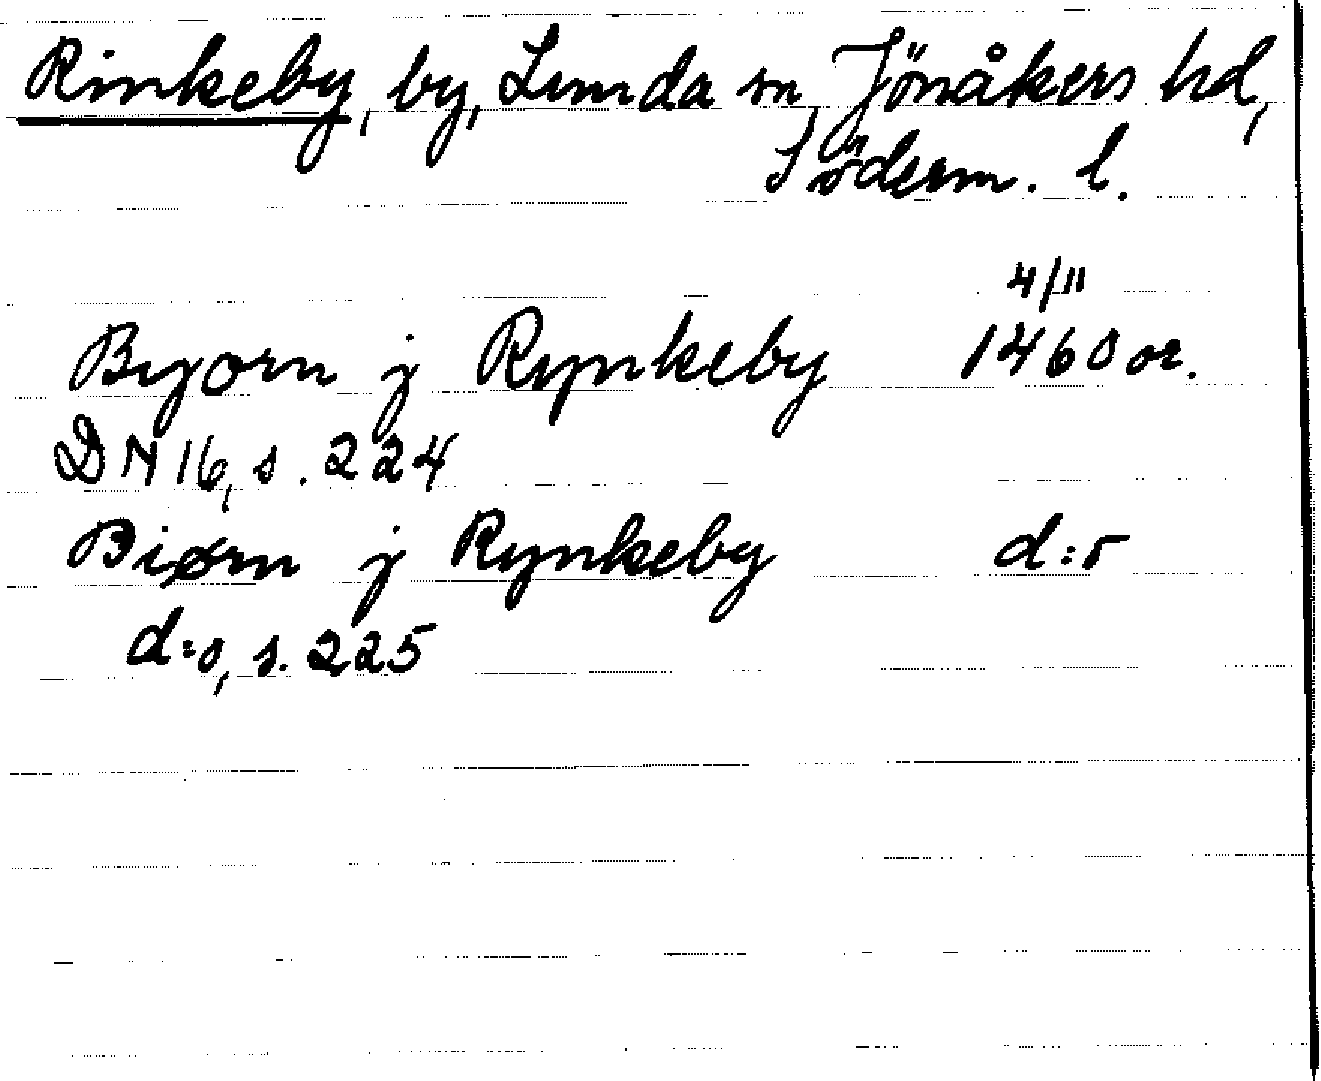 Rinkeby, by, Lunda sn, Jönåkers hd,
Söderm. l.
4/11
Byorn j Rynkeby 1460 or.
DN 16, s. 224
Biørn j Rynkeby d:o
d:o, s. 225